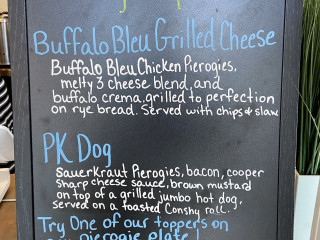 Buffalo Bleu Grilled Cheese
Buffalo Bleu Chicken Pierogies,
melty 3 cheese blend, and
buffalo crema, grilled to perfection
on rye bread. Served with chips & slaw
PK Dog
Sauerkraut Pierogies, bacon, cooper
sharp cheese sauce, brown mustard
on top of a grilled jumbo hot dog,
served on a toasted Conshy roll.
Try One of our toppers on
pierogie plate!